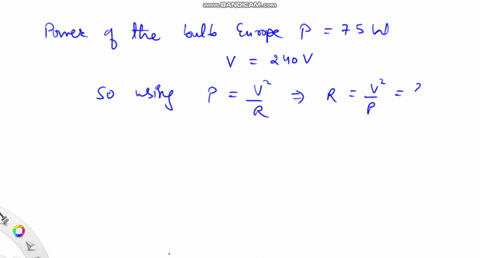 WWW.BANDICAM.COM
Power of the bulb Europe P = 75 W
V = 240 V
So using P = V²/R ⇒ R = V²/P = ?